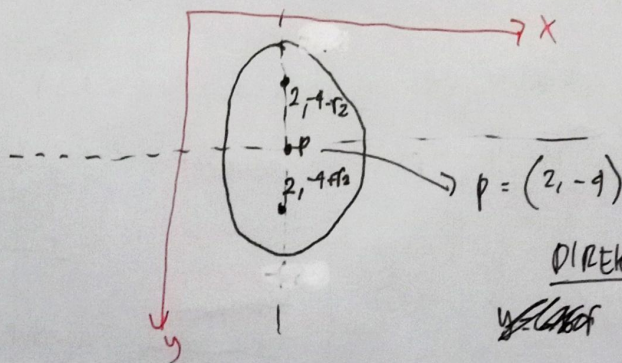 x
2, -4-√2
P
2, -4+√2
p = (2, -4)
DIREK
y